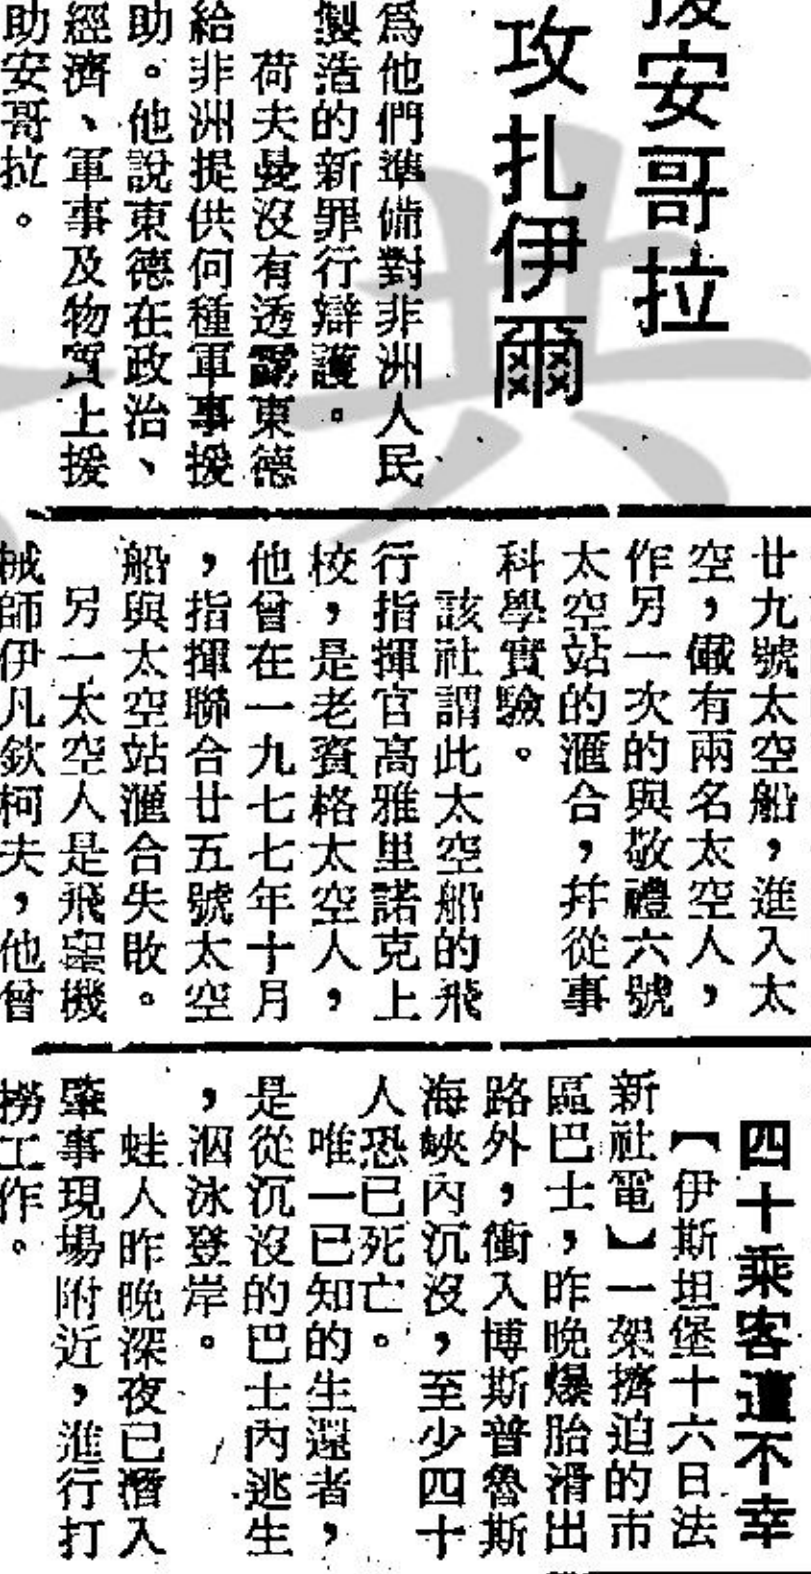 援安哥拉
攻扎伊爾
爲他們準備對非洲人民
製造的新罪行辯護。
荷夫曼沒有透露東德
給非洲提供何種軍事援
助。他說東德在政治、
經濟、軍事及物質上援
助安哥拉。
廿九號太空船，進入太
空，儎有兩名太空人，
作另一次的與敬禮六號
太空站的滙合，幷從事
科學實驗。
該社謂此太空船的飛
行指揮官高雅里諾克上
校，是老資格太空人，
他曾在一九七七年十月
，指揮聯合廿五號太空
船與太空站滙合失敗。
另一太空人是飛機機
械師伊凡欽柯夫，他曾
四十乘客遭不幸
【伊斯坦堡十六日法
新社電】一架擠迫的市
區巴士，昨晚爆胎滑出
路外，衝入博斯普魯斯
海峽內沉沒，至少四十
人恐已死亡。
唯一已知的生還者，
是從沉沒的巴士內逃生
，泅泳登岸。
蛙人昨晚深夜已潛入
肇事現場附近，進行打
撈工作。